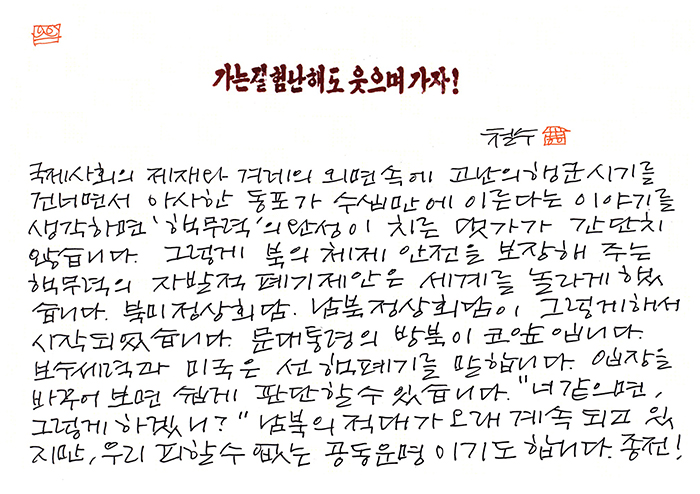 가는길 험난해도 웃으며 가자!
철수
국제사회의 제재와 겨레의 외면속에 고난의행군시기를
건너면서 아사한 동포가 수십만에 이른다는 이야기를
생각하면 '핵무력'의완성이 치른 댓가가 간단치
않습니다. 그렇게 북의 체제 안전을 보장해 주는
핵무력의 자발적 폐기제안은 세계를 놀라게 했
습니다. 북미정상회담. 남북정상회담이 그렇게해서
시작되었습니다. 문대통령의 방북이 코앞 입니다.
보수세력과 미국은 선 핵폐기를 말합니다. 입장을
바꾸어 보면 쉽게 판단할 수 있습니다. "너같으면,
그렇게 하겠니?" 남북의 적대가 오래 계속 되고 있
지만, 우리 피할수 없는 공동운명 이기도 합니다. 종전!